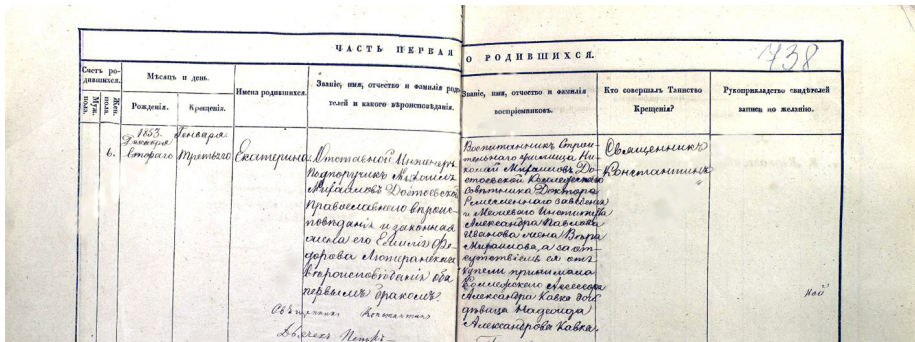 ЧАСТЬ ПЕРВАЯ О РОДИВШИХСЯ.
738
Счетъ родившихся.
Муж. пола.
Жен. пола.
Мѣсяцъ и день.
Рожденія.
Крещенія.
Имена родившихся.
Званіе, имя, отчество и фамилія родителей и какого вѣроисповѣданія.
Званіе, имя, отчество и фамилія
воспріемниковъ.
Кто совершалъ Таинство
Крещенія?
Рукоприкладство свидѣтелей
записи по желанію.
6.
1853.
Декабря
втораго
Генваря
третьяго
Екатерина
Отставной Инженеръ
Подпоручикъ Михаилъ
Михаиловъ Достоевской
Православнаго вѣроис-
повѣданія и законная
жена его Емилія Фе-
дорова Лютеранскаго
вѣроисповѣданія оба
первымъ бракомъ.
Священникъ Константинъ
Дьячекъ Петръ
Воспитанникъ Строи-
тельнаго училища Ни-
колай Михаиловъ До-
стоевской
Совѣтника Доктора
Ремесленнаго заведенія
и Межеваго Института
Александра Павлова
Иванова жена Вѣра
Михаилова, а за от-
сутствіемъ ея отъ
купели принимала
Ассесора
Александра Кавка доч
дѣвица Надежда
Александрова Кавка.
Священникъ
Константинъ